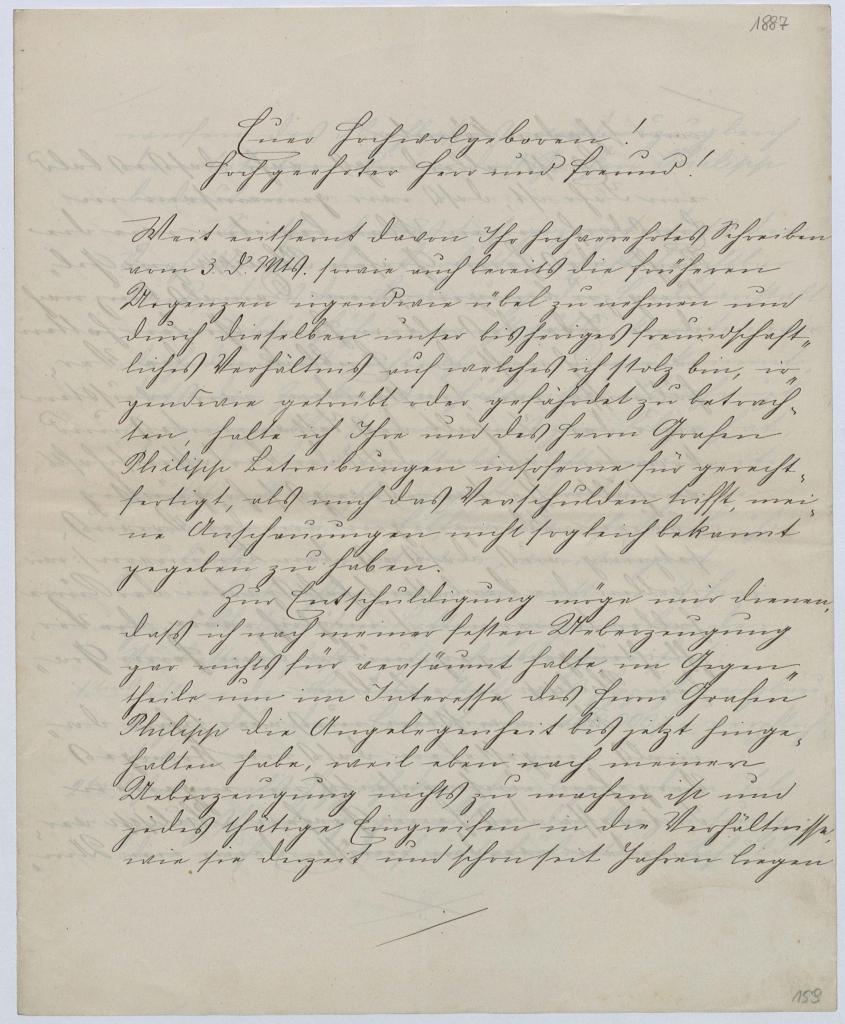 1887
Euer Hochwolgeboren!
Hochgeehrter Herr und Freund!
Weit entfernt davon Ihr hochverehrtes Schreiben
vom 3. d. Mts. sowie auch bereits die früheren
Urgenzen irgendwie übel zu nehmen und
durch dieselben unser bisheriges freundschaft„
liches Verhältnis auf welches ich stolz bin, ir„
gendwie getrübt oder gefährdet zu betrach„
ten, halte ich Ihre und des Herrn Grafen
Philipp Betreibungen insoferne für gerecht„
fertigt, als mich das Verschulden trifft, mei„
ne Anschauungen nicht sogleich bekannt
gegeben zu haben.
Zur Entschuldigung möge mir dienen,
dass ich nach meiner festen Ueberzeugung
gar nichts für versäumt halte, im Gegen„
theile nur im Interesse des Herrn Grafen
Philipp die Angelegenheit bis jetzt hinge„
halten habe, weil eben nach meiner
Ueberzeugung nichts zu machen ist und
jedes thätige Eingreifen in die Verhältnisse,
wie sie derzeit und schon seit Jahren liegen
159